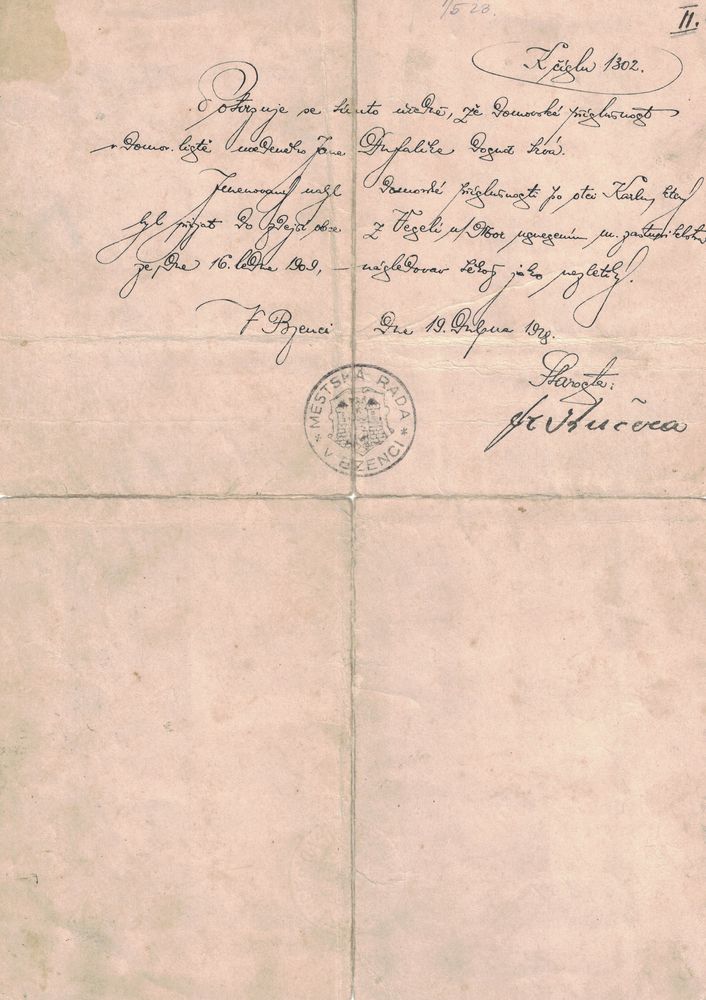 1/5 28.
II.
K číslu 1302.
Potvrzuje se tímto úředně, že domovská příslušnost
v domov. listě uvedeného Jana Drufalíka dosud trvá.
Jmenovaný nabyl domovské příslušnosti po otci Karlu, který
byl přijat do zdejší obce z Veselí n/Mor usnesením m. zastupitelstva
ze dne 16. ledna 1909, — následovav téhož jako nezletilý.
V Bzenci dne 19. dubna 1928.
Starosta:
Kučera
* MĚSTSKÁ RADA * V BZENCI